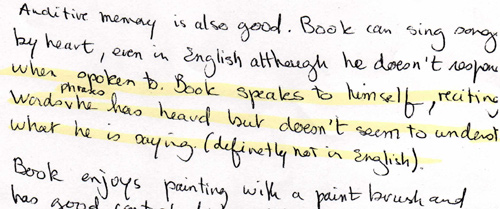 Auditive memory is also good. Book can sing songs
by heart, even in English although he doesn't respon
when spoken to. Book speaks to himself, reciting
phrases
words he has heard but doesn't seem to underst
what he is saying. (definetly not in English).
Book enjoys painting with a paint brush and
has good